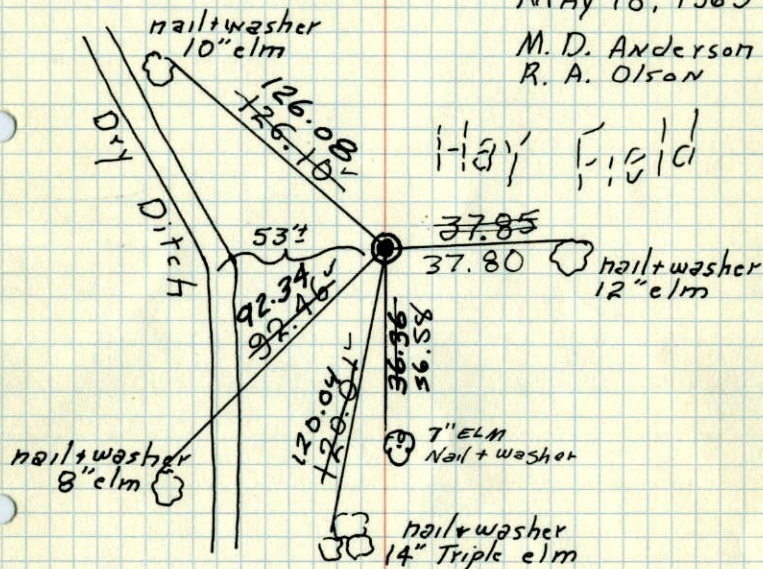 MAY 18, 1965
M. D. Anderson
R. A. Olson
nail + washer
10" elm
126.08
126.10
Hay Field
Dry Ditch
53'±
37.85
37.80
nail + washer
12" elm
92.34
92.46
36.36
36.58
120.04
120.01
7" ELM
Nail + washer
nail + washer
8" elm
nail + washer
14" Triple elm